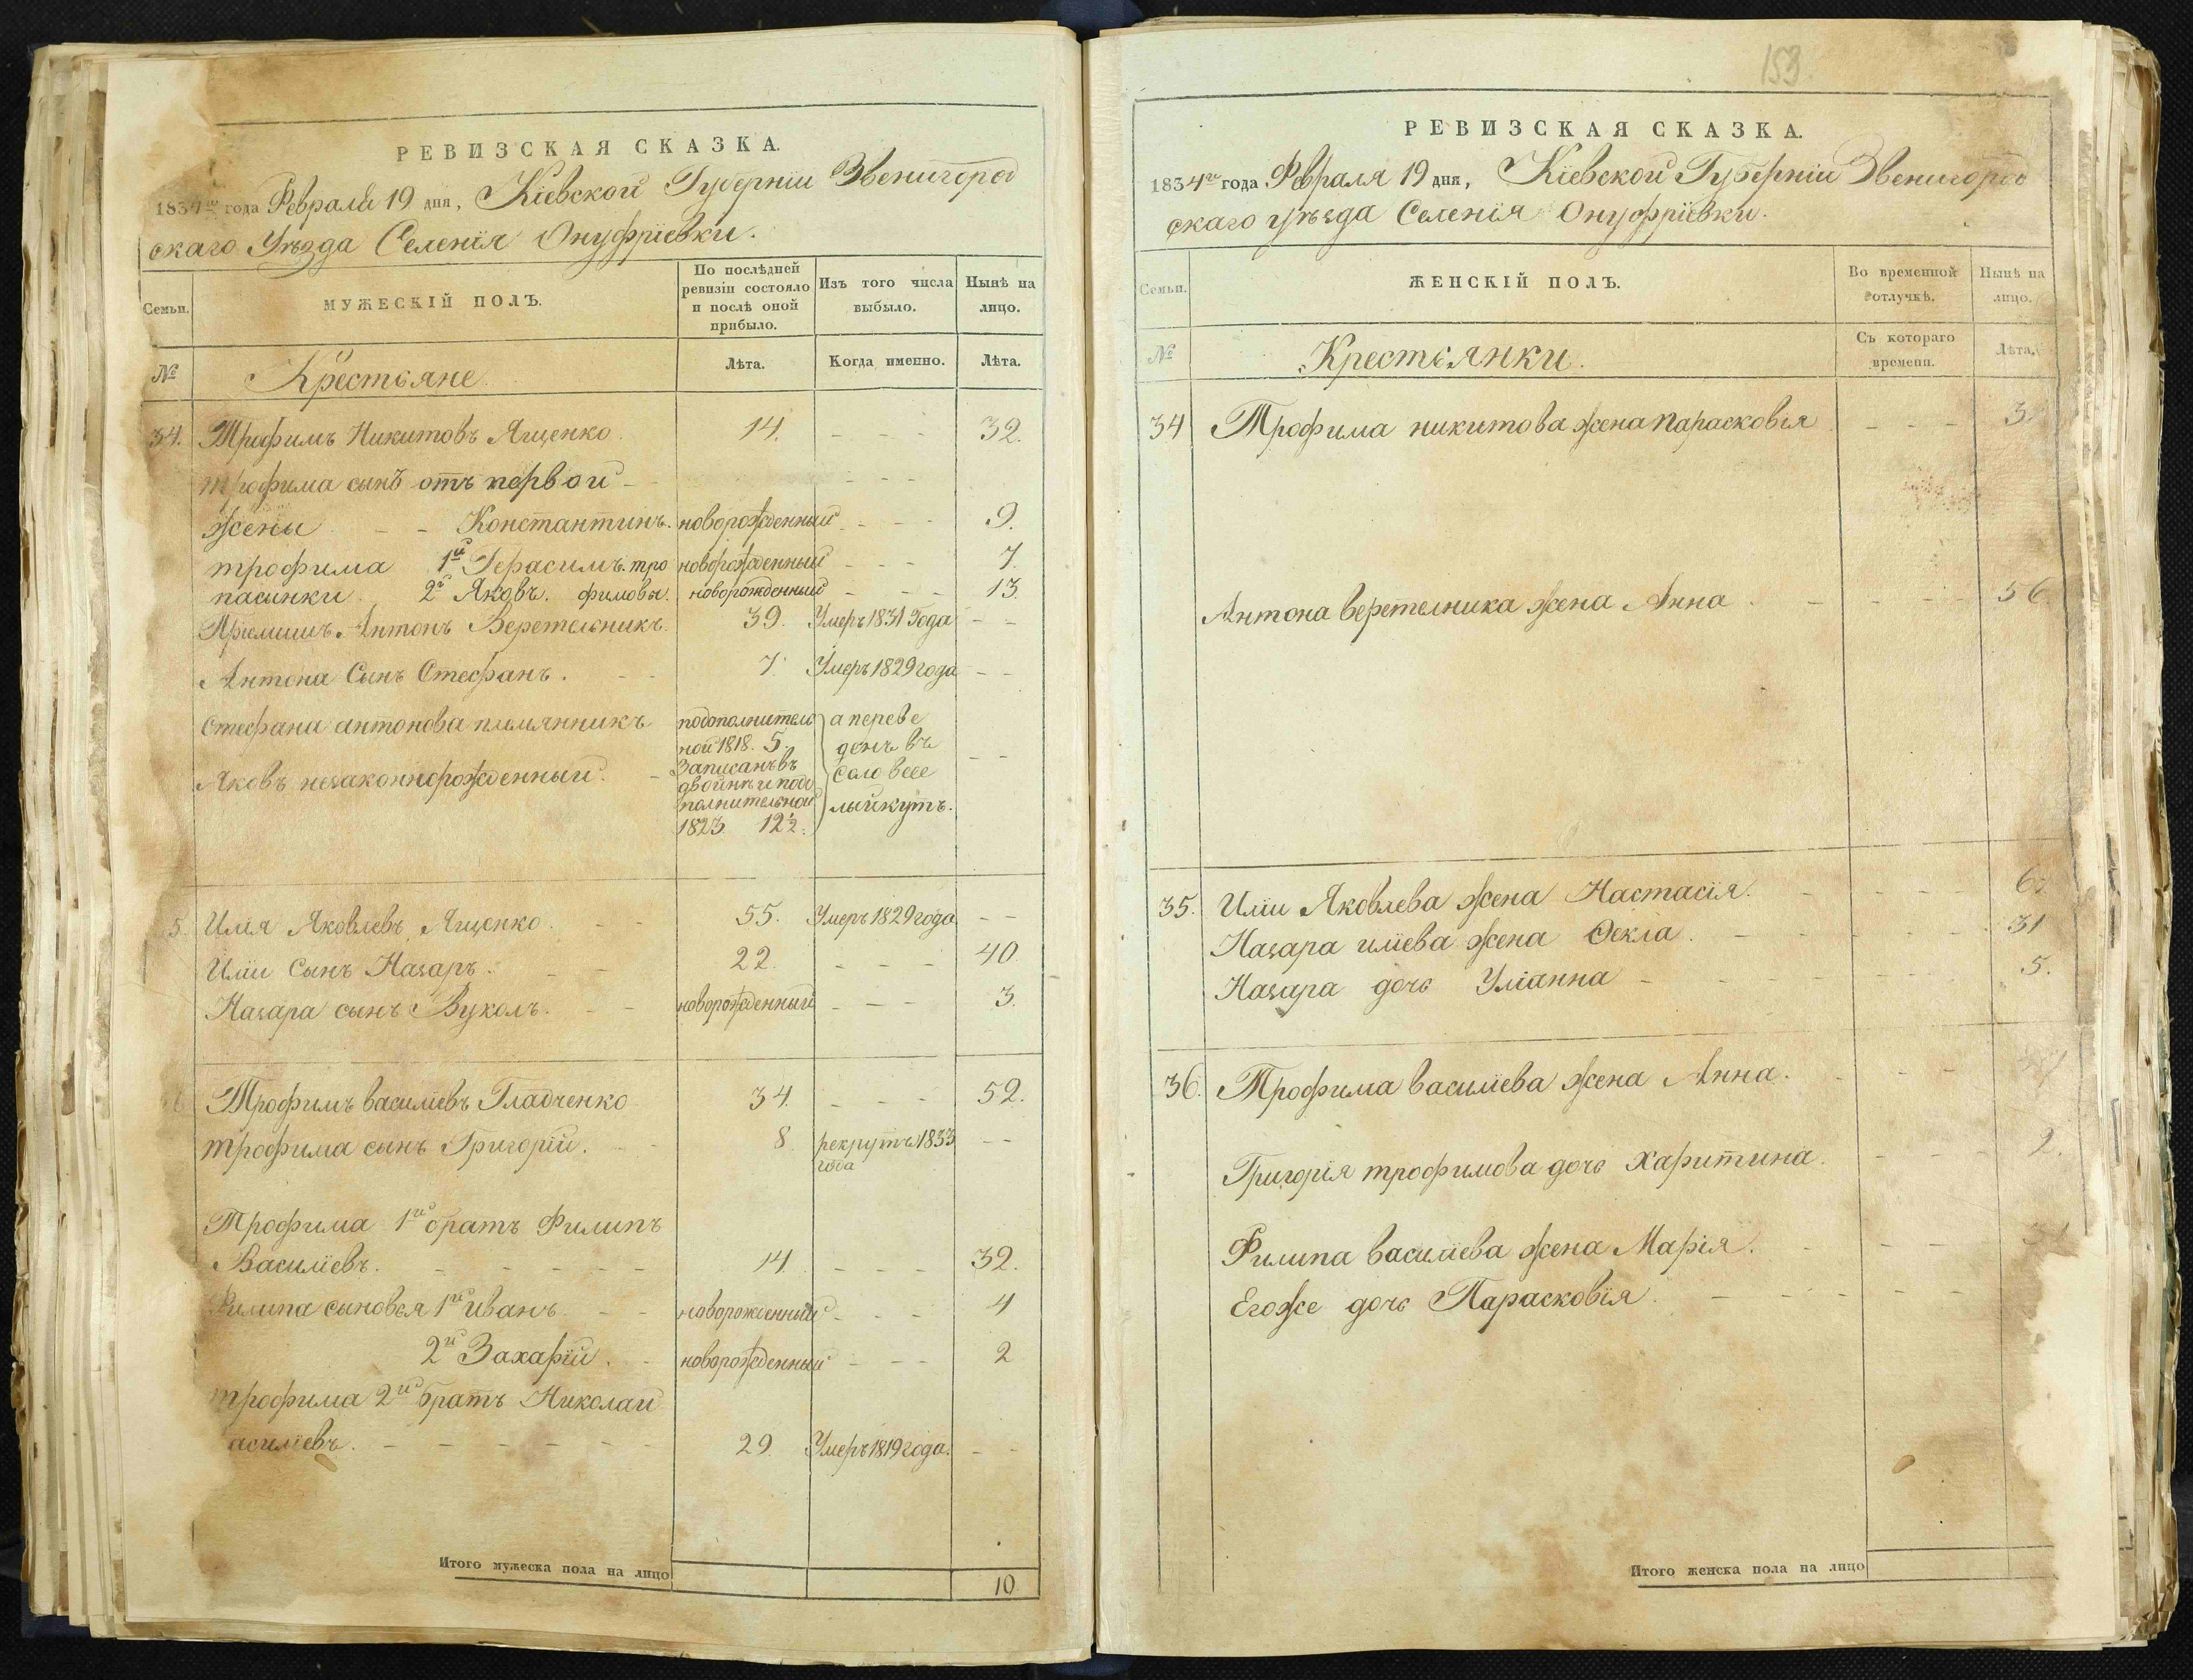 РЕВИЗСКАЯ СКАЗКА.
1834го года Февраля 19 дня, Кіевской Губерніи Звенигород
скаго Уѣзда Селенія Онуфріевки.
Семьи. МУЖЕСКІЙ ПОЛЪ. По послѣдней ревизіи состояло и послѣ оной прибыло. Изъ того числа выбыло. Нынѣ на лицо.
№ Крестьяне Лѣта. Когда именно. Лѣта.
34. Трофимъ Никитовъ Ященко. 14. - - - 32.
трофима сынъ отъ первой - - - -
жены - - Константинъ. новорожденный - - - 9.
трофима 1й Герасимъ. тро новорожденный - - - 7.
пасынки. 2й Яковъ. фимовы. новорожденный - - - 13
Пріемышъ Антонъ Веретельникъ. 39. Умеръ 1831 Года - -
Антона Сынъ Стефанъ. - - 7. Умеръ 1829 года - -
Стефана антонова племянникъ подополнитель а переве
ной 1818. 5. денъ въ - -
Яковъ незаконнорожденный. - Записанъ въ село весе
двойнѣ и подо
полнительной лыйкутъ.
1823 12½.
5. Илія Яковлевъ Ященко. - - 55. Умеръ 1829 года - -
Иліи Сынъ Назаръ. - - 22. - - - 40
Назара сынъ Вуколъ. - - новорожденный - - 3.
Трофимъ василіевъ Гладченко 34. - - - 52.
трофима сынъ Григорій. - - 8 рекрутъ 1833 - -
года
Трофима 1й братъ Филипъ
Василіевъ. - - - - - 14 - - - 32.
Филипа сыновья 1й иванъ - - новорожденный - - - 4
2й Захарій. - новорожденный - - - 2
трофима 2й братъ Николай
асиліевъ. - - - - - - 29. Умеръ 1819 года. - -
Итого мужеска пола на лицо 10
153.
РЕВИЗСКАЯ СКАЗКА.
1834го года Февраля 19 дня, Кіевской Губерніи Звенигород
скаго уѣзда Селенія Онуфріевки.
Семьи. ЖЕНСКІЙ ПОЛЪ. Во временной отлучкѣ. Нынѣ на лицо.
№ Крестьянки. Съ котораго времени. Лѣта.
34 Трофима никитова жена Парасковья - - -
Антона веретелника жена Анна. - - - - 56
35. Иліи Яковлева жена Настасія. - - - -
Назара иліева жена Ѳекла. - - - - 31
Назара дочь Уліанна - - - - 5.
36. Трофима василіева жена Анна. - - -
Григорія трофимова дочь Харитина. - - - 2.
Филипа василіева жена Марія. - - -
Егоже дочь Парасковія. - - - - - -
Итого женска пола на лицо